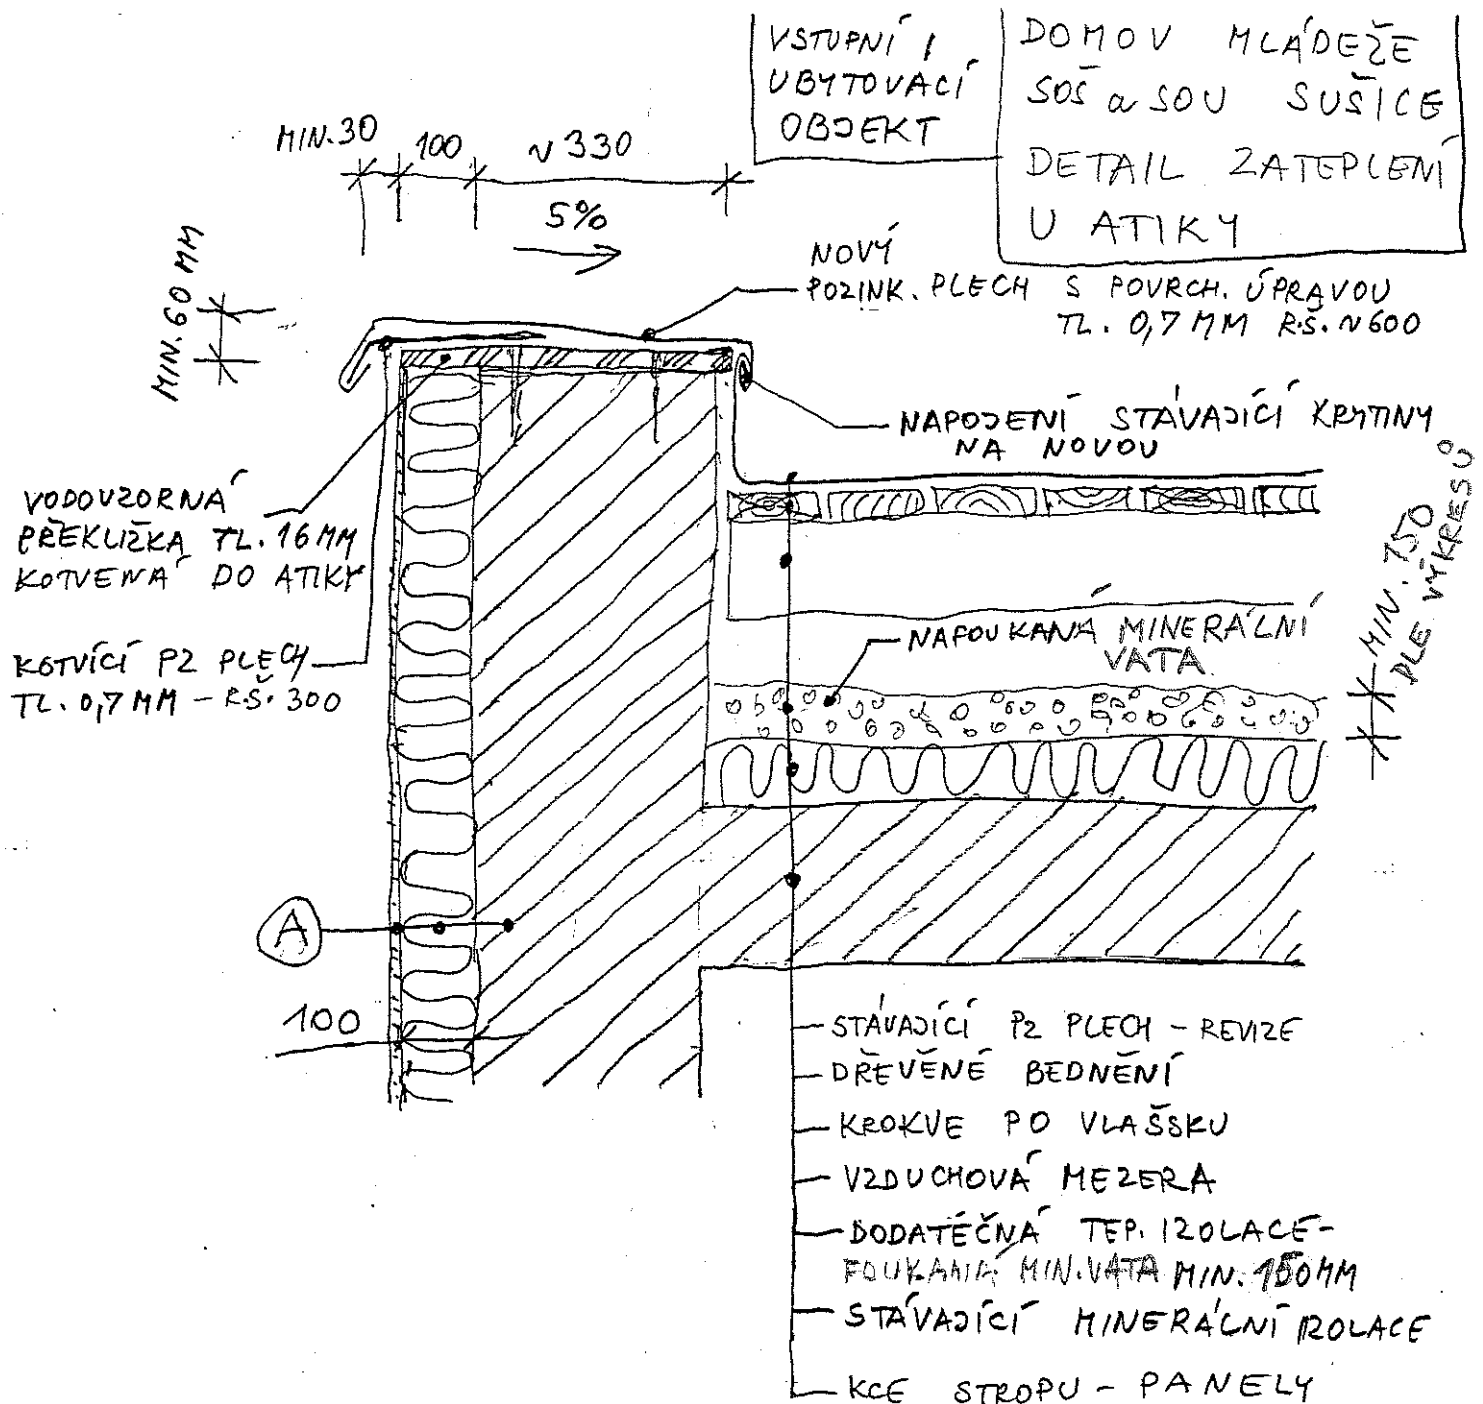 VSTUPNÍ I
UBYTOVACÍ
OBJEKT
DOMOV MLÁDEŽE
SOŠ a SOU SUŠICE
DETAIL ZATEPLENÍ
U ATIKY
MIN.30
100
~330
5%
MIN.60 MM
NOVÝ
POZINK. PLECH S POVRCH. ÚPRAVOU
TL. 0,7 MM R.Š. ~600
NAPOJENÍ STÁVAJÍCÍ KRYTINY
NA NOVOU
VODOVZORNÁ
PŘEKLIŽKA TL. 16 MM
KOTVENÁ DO ATIKY
KOTVÍCÍ PZ PLECH
TL. 0,7 MM - R.Š. 300
NAFOUKANÁ MINERÁLNÍ
VATA
MIN. 150
DLE VÝKRESŮ
A
100
STÁVAJÍCÍ PZ PLECH - REVIZE
DŘEVĚNÉ BEDNĚNÍ
KROKVE PO VLAŠSKU
VZDUCHOVÁ MEZERA
DODATEČNÁ TEP. IZOLACE-
FOUKANÁ MIN.VATA MIN. 150MM
STÁVAJÍCÍ MINERÁLNÍ IZOLACE
KCE STROPU - PANELY